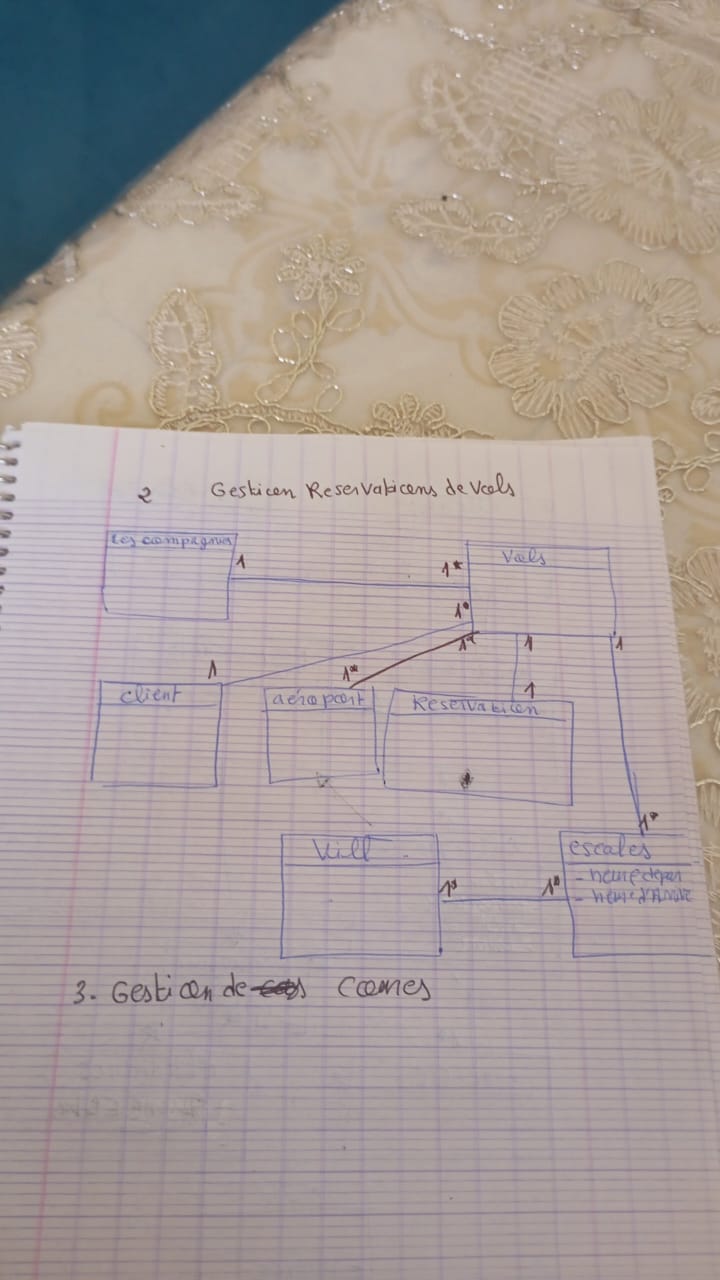 2 Gestion Reservations de Vols
Les compagnies
Vols
1
1*
1*
1*
1
1*
1
1
1
client
aéroport
Reservation
1*
Vill
escales
- heure depar
- heure d'Arrivé
1*
1*
3. Gestion de Cornes